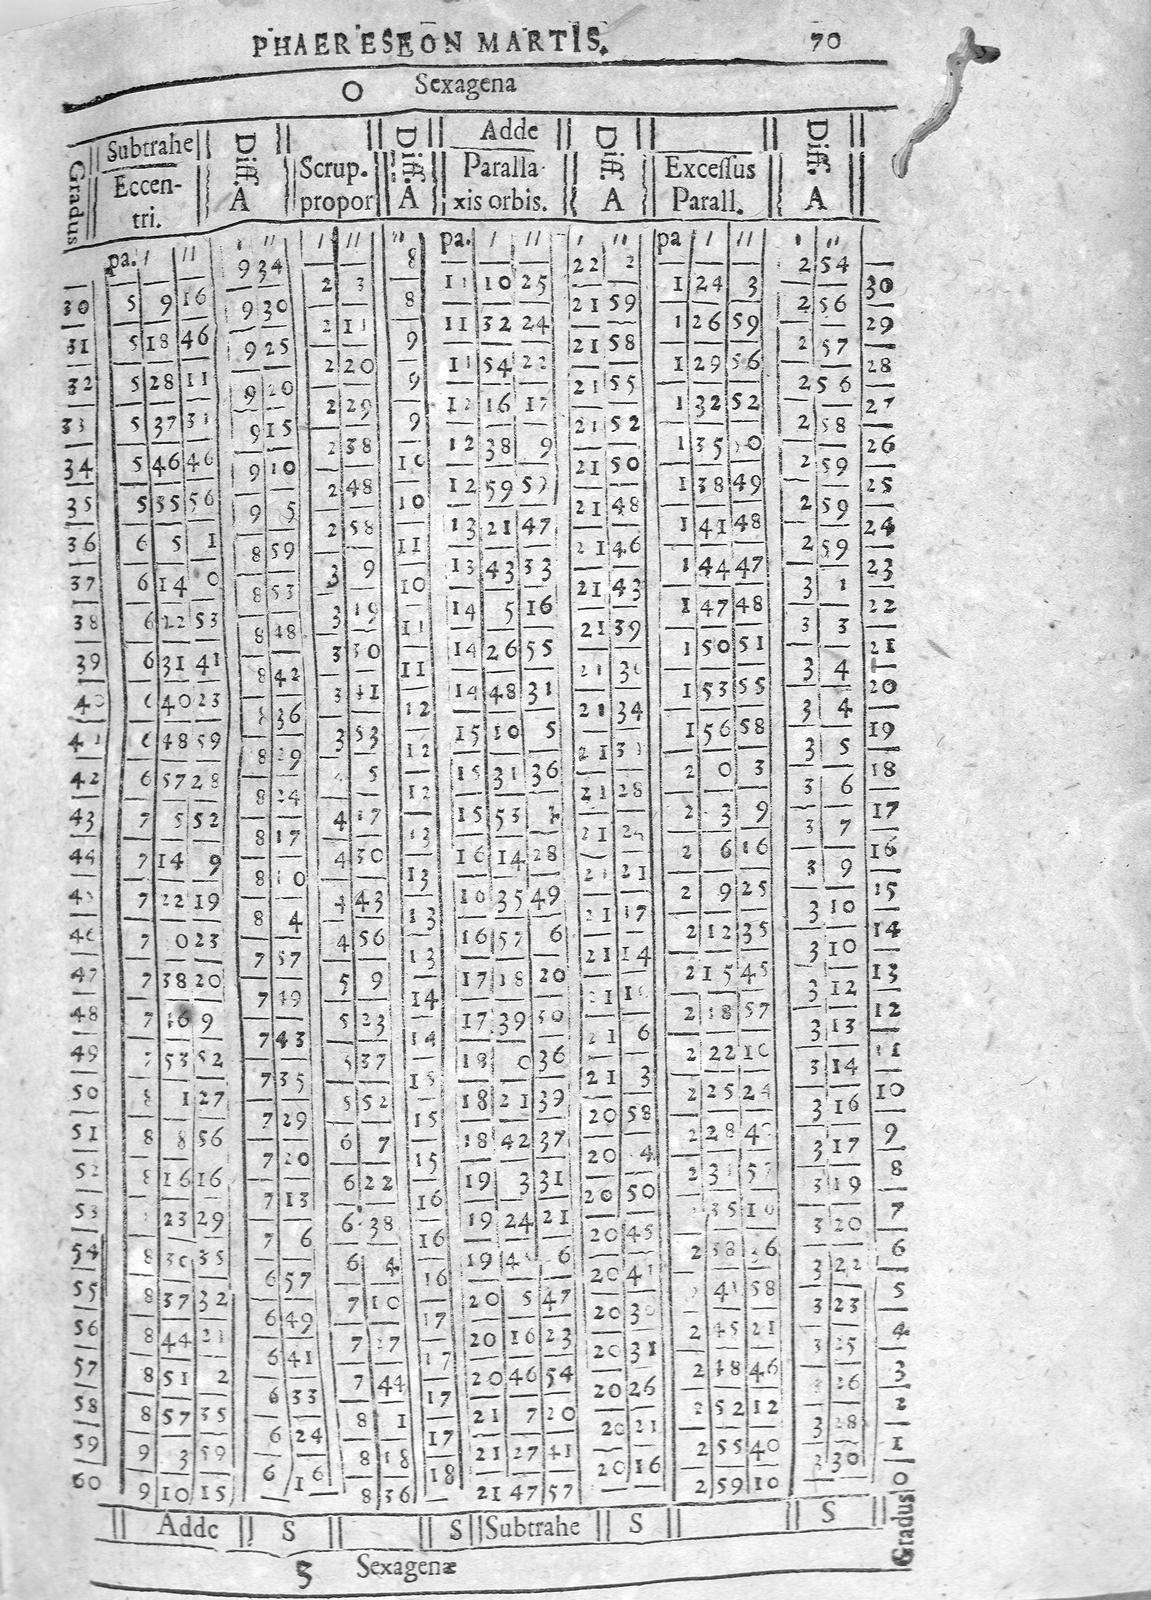 PHAERESEON MARTIS. 70
0 Sexagena
Gradus | Subtrahe Eccen- tri. | Diff. A | Scrup. propor | Diff. A | Adde Paralla- xis orbis. | Diff. A | Excessus Parall. | Diff. A
pa. ' '' | ' '' | ' '' | '' | pa. ' '' | ' '' | pa ' '' | ' ''
9 34 | 8 | 22 2 | 2 54
30 | 5 9 16 | 2 3 | 11 10 25 | 1 24 3 | 30
9 30 | 8 | 21 59 | 2 56
31 | 5 18 46 | 2 11 | 11 32 24 | 1 26 59 | 29
9 25 | 9 | 21 58 | 2 57
32 | 5 28 11 | 2 20 | 11 54 22 | 1 29 56 | 28
9 20 | 9 | 21 55 | 2 56
33 | 5 37 31 | 2 29 | 12 16 17 | 1 32 52 | 27
9 15 | 9 | 21 52 | 2 58
34 | 5 46 46 | 2 38 | 12 38 9 | 1 35 | 26
9 10 | 10 | 21 50 | 2 59
35 | 5 55 56 | 2 48 | 12 59 59 | 1 38 49 | 25
9 5 | 10 | 21 48 | 2 59
36 | 6 5 1 | 2 58 | 13 21 47 | 1 41 48 | 24
8 59 | 11 | 21 46 | 2 59
37 | 6 14 0 | 3 9 | 13 43 33 | 1 44 47 | 23
8 53 | 10 | 21 43 | 3 1
38 | 6 22 53 | 3 19 | 14 5 16 | 1 47 48 | 22
8 48 | 11 | 21 39 | 3 3
39 | 6 31 41 | 3 30 | 14 26 55 | 1 50 51 | 21
8 42 | 11 | 21 | 3 4
40 | 6 40 23 | 3 41 | 14 48 31 | 1 53 55 | 20
8 36 | 12 | 21 34 | 3 4
41 | 6 48 59 | 3 53 | 15 10 5 | 1 56 58 | 19
8 29 | 12 | 21 31 | 3 5
42 | 6 57 28 | 5 | 15 31 36 | 2 0 3 | 18
8 24 | 12 | 21 28 | 3 6
43 | 7 5 52 | 4 17 | 15 53 | 2 3 9 | 17
8 17 | 13 | 21 | 3 7
44 | 7 14 9 | 4 30 | 16 14 28 | 2 6 16 | 16
8 10 | 13 | 21 21 | 3 9
45 | 7 22 19 | 4 43 | 16 35 49 | 2 9 25 | 15
8 4 | 13 | 21 17 | 3 10
46 | 7 0 23 | 4 56 | 16 57 6 | 2 12 35 | 14
7 57 | 13 | 21 14 | 3 10
47 | 7 38 20 | 5 9 | 17 18 20 | 2 15 45 | 13
7 49 | 14 | 21 | 3 12
48 | 7 16 9 | 5 23 | 17 39 30 | 2 18 57 | 12
7 43 | 14 | 21 6 | 3 13
49 | 7 53 52 | 5 37 | 18 0 36 | 2 22 10 | 11
7 35 | 15 | 21 3 | 3 14
50 | 8 1 27 | 5 52 | 18 21 39 | 2 25 24 | 10
7 29 | 15 | 20 58 | 3 16
51 | 8 8 56 | 6 7 | 18 42 37 | 2 28 | 9
7 20 | 15 | 20 4 | 3 17
52 | 8 16 16 | 6 22 | 19 3 31 | 2 31 57 | 8
7 13 | 16 | 20 50 | 3 19
53 | 23 29 | 6 38 | 19 24 21 | 35 | 7
7 6 | 16 | 20 45 | 3 20
54 | 8 30 35 | 6 4 | 19 4 6 | 2 38 | 6
6 57 | 16 | 20 41 | 3 22
55 | 8 37 32 | 7 10 | 20 5 47 | 41 58 | 5
6 49 | 17 | 20 | 3 23
56 | 8 44 21 | 7 27 | 20 16 23 | 2 45 21 | 4
6 41 | 17 | 20 31 | 3 25
57 | 8 51 2 | 7 44 | 20 46 54 | 2 48 46 | 3
6 33 | 17 | 20 26 | 3 26
58 | 8 57 35 | 8 1 | 21 7 20 | 2 52 12 | 2
6 24 | 17 | 20 21 | 3 28
59 | 9 3 59 | 8 18 | 21 27 41 | 2 55 40 | 1
6 16 | 18 | 20 16 | 3 30
60 | 9 10 15 | 8 36 | 21 47 57 | 2 59 10 | 0
Adde | S | S | Subtrahe | S | S | Gradus
5 Sexagenæ